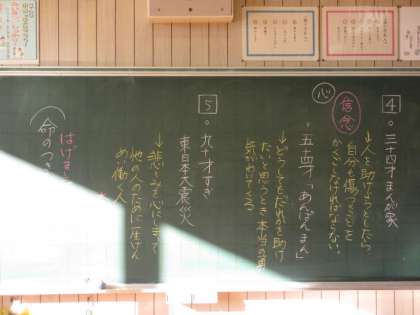 4
三十四才まんが家
↓人を助けようとしたら
自分も傷つくことを
かくごしなければならない。
信念
心
五十四才「あんぱんまん」
↓どうしてもだれかを助け
たいと思うとき本当の勇
気がわいてくる
5
九十才すぎ
東日本大震災
↓悲しみを心にしまって
他の人のために一生けん
めい働く人
はげま
命のつき